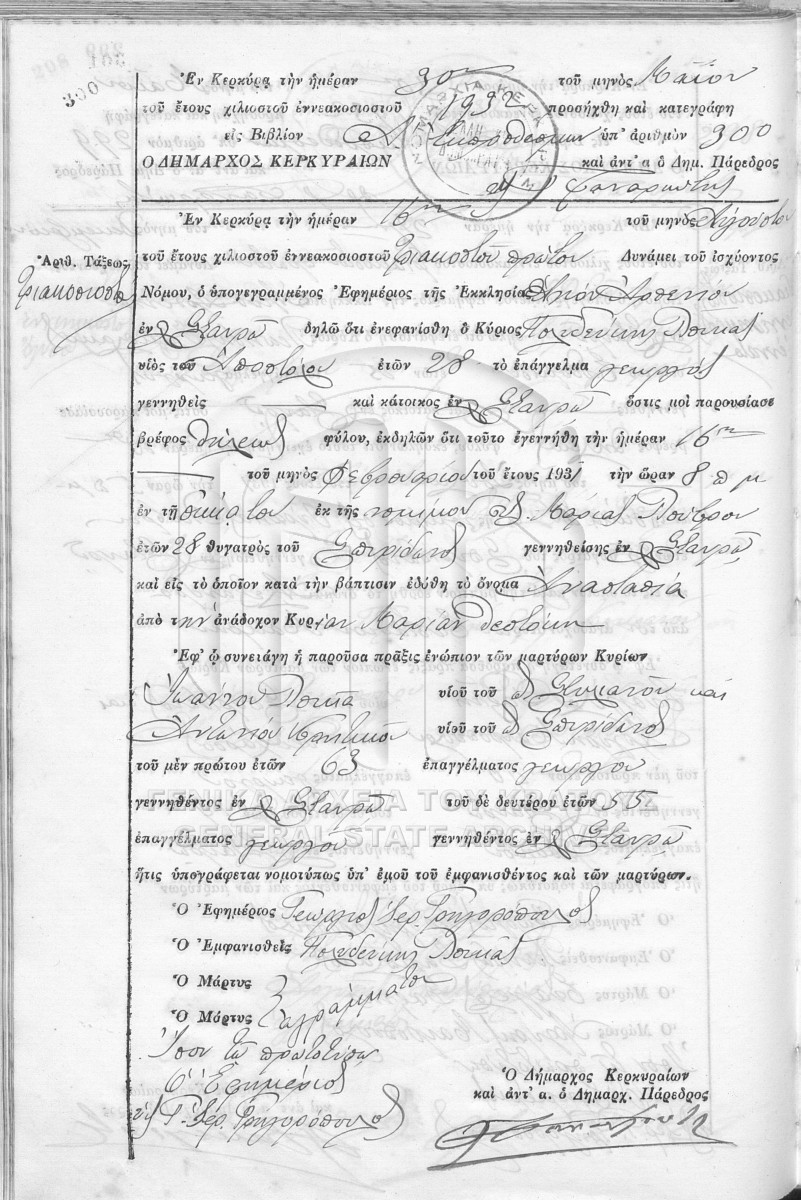 300
Ἐν Κερκύρᾳ τὴν ἡμέραν 30ην τοῦ μηνὸς Μαΐου
τοῦ ἔτους χιλιοστοῦ ἐννεακοσιοστοῦ 1932 προσήχθη καὶ κατεγράφη
εἰς Βιβλίον Δ. Ἐκπροθέσμων ὑπ' ἀριθμὸν 300
Ο ΔΗΜΑΡΧΟΣ ΚΕΡΚΥΡΑΙΩΝ καὶ ἀντ' α ὁ Δημ. Πάρεδρος
Ἐν Κερκύρᾳ τὴν ἡμέραν 16ην τοῦ μηνὸς Αὐγούστου
Ἀριθ. Τάξεως
τοῦ ἔτους χιλιοστοῦ ἐννεακοσιοστοῦ τριακοστοῦ πρώτου Δυνάμει τοῦ ἰσχύοντος
Νόμου, ὁ ὑπογεγραμμένος Ἐφημέριος τῆς Ἐκκλησίας Ἁγίου Ἀρσενίου
ἐν Σταυρῷ δηλῶ ὅτι ἐνεφανίσθη ὁ Κύριος Πολυδεύκης
υἱὸς τοῦ Ἀποστόλου ἐτῶν 28 τὸ ἐπάγγελμα γεωργὸς
γεννηθεὶς — καὶ κάτοικος ἐν Σταυρῷ ὅστις μοὶ παρουσίασε
βρέφος θήλεως φύλου, ἐκδηλῶν ὅτι τοῦτο ἐγεννήθη τὴν ἡμέραν 16ην
— τοῦ μηνὸς Φεβρουαρίου τοῦ ἔτους 1931 τὴν ὥραν 8 π μ
ἐν τῇ οἰκίᾳ του ἐκ τῆς νομίμου του σ. Μαρίας
ἐτῶν 28 θυγατρὸς τοῦ Σπυρίδωνος γεννηθείσης ἐν Σταυρῷ
καὶ εἰς τὸ ὁποῖον κατὰ τὴν βάπτισιν ἐδόθη τὸ ὄνομα Ἀναστασία
ἀπὸ τὴν ἀνάδοχον Κυρίαν Μαρίαν Θεοτόκη
Ἐφ' ᾧ συνετάγη ἡ παροῦσα πρᾶξις ἐνώπιον τῶν μαρτύρων Κυρίων
Ἰωάννου υἱοῦ τοῦ Σταματίου καὶ
Ἀντωνίου Κρητικοῦ υἱοῦ τοῦ Σπυρίδωνος
τοῦ μὲν πρώτου ἐτῶν 63 ἐπαγγέλματος γεωργοῦ
γεννηθέντος ἐν Σταυρῷ τοῦ δὲ δευτέρου ἐτῶν 55
ΓΕΝΙΚΑ ΑΡΧΕΙΑ ΤΟΥ ΚΡΑΤΟΥΣ
GENERAL STATE ARCHIVES
ἐπαγγέλματος γεωργοῦ γεννηθέντος ἐν Σταυρῷ
ἥτις ὑπογράφεται νομοτύπως ὑπ' ἐμοῦ τοῦ ἐμφανισθέντος καὶ τῶν μαρτύρων.
Ὁ Ἐφημέριος Γεώργιος Ἱερ. Γρηγορόπουλος
Ὁ Ἐμφανισθείς Πολυδεύκης
Ὁ Μάρτυς
Ὁ Μάρτυς ἀγράμματοι
Ἴσον τῷ πρωτοτύπῳ
Ὁ Ἐφημέριος
Γ. Ἱερ. Γρηγορόπουλος
Ὁ Δήμαρχος Κερκυραίων
καὶ ἀντ' α. ὁ Δημαρχ. Πάρεδρος